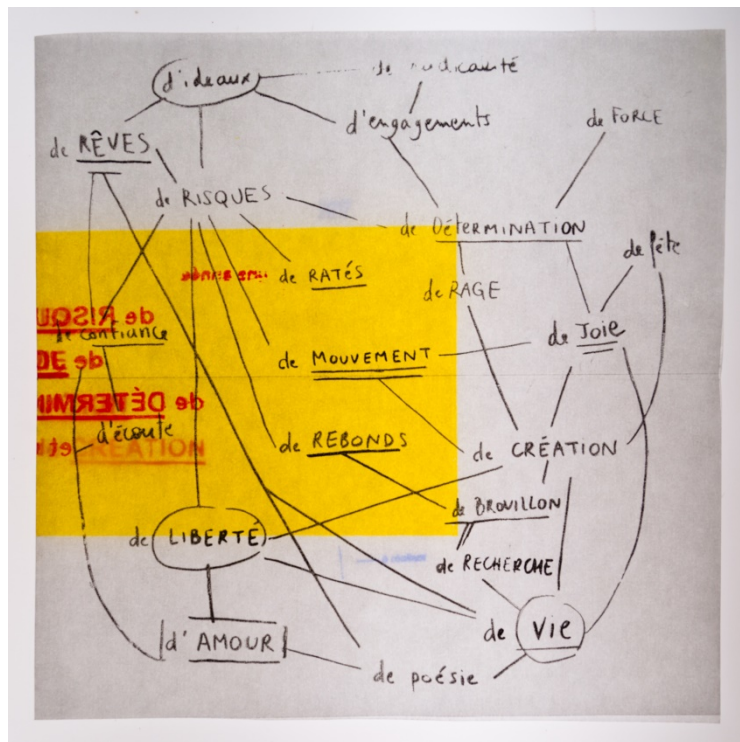 d'ideaux
de radicalité
d'engagements
de FORCE
de RÊVES
de RISQUES
de DéTERMINATION
de fête
une année
de RATéS
de RAGE
de RISQU
de confiance
de JOIE
DE
de
de MOUVEMENT
de DÉTERMIN
d'écoute
de REBONDS
de CRÉATION
et
CRÉATION
de BROUILLON
de LIBERTÉ
de RECHERCHE
d'AMOUR
de VIE
de poésie